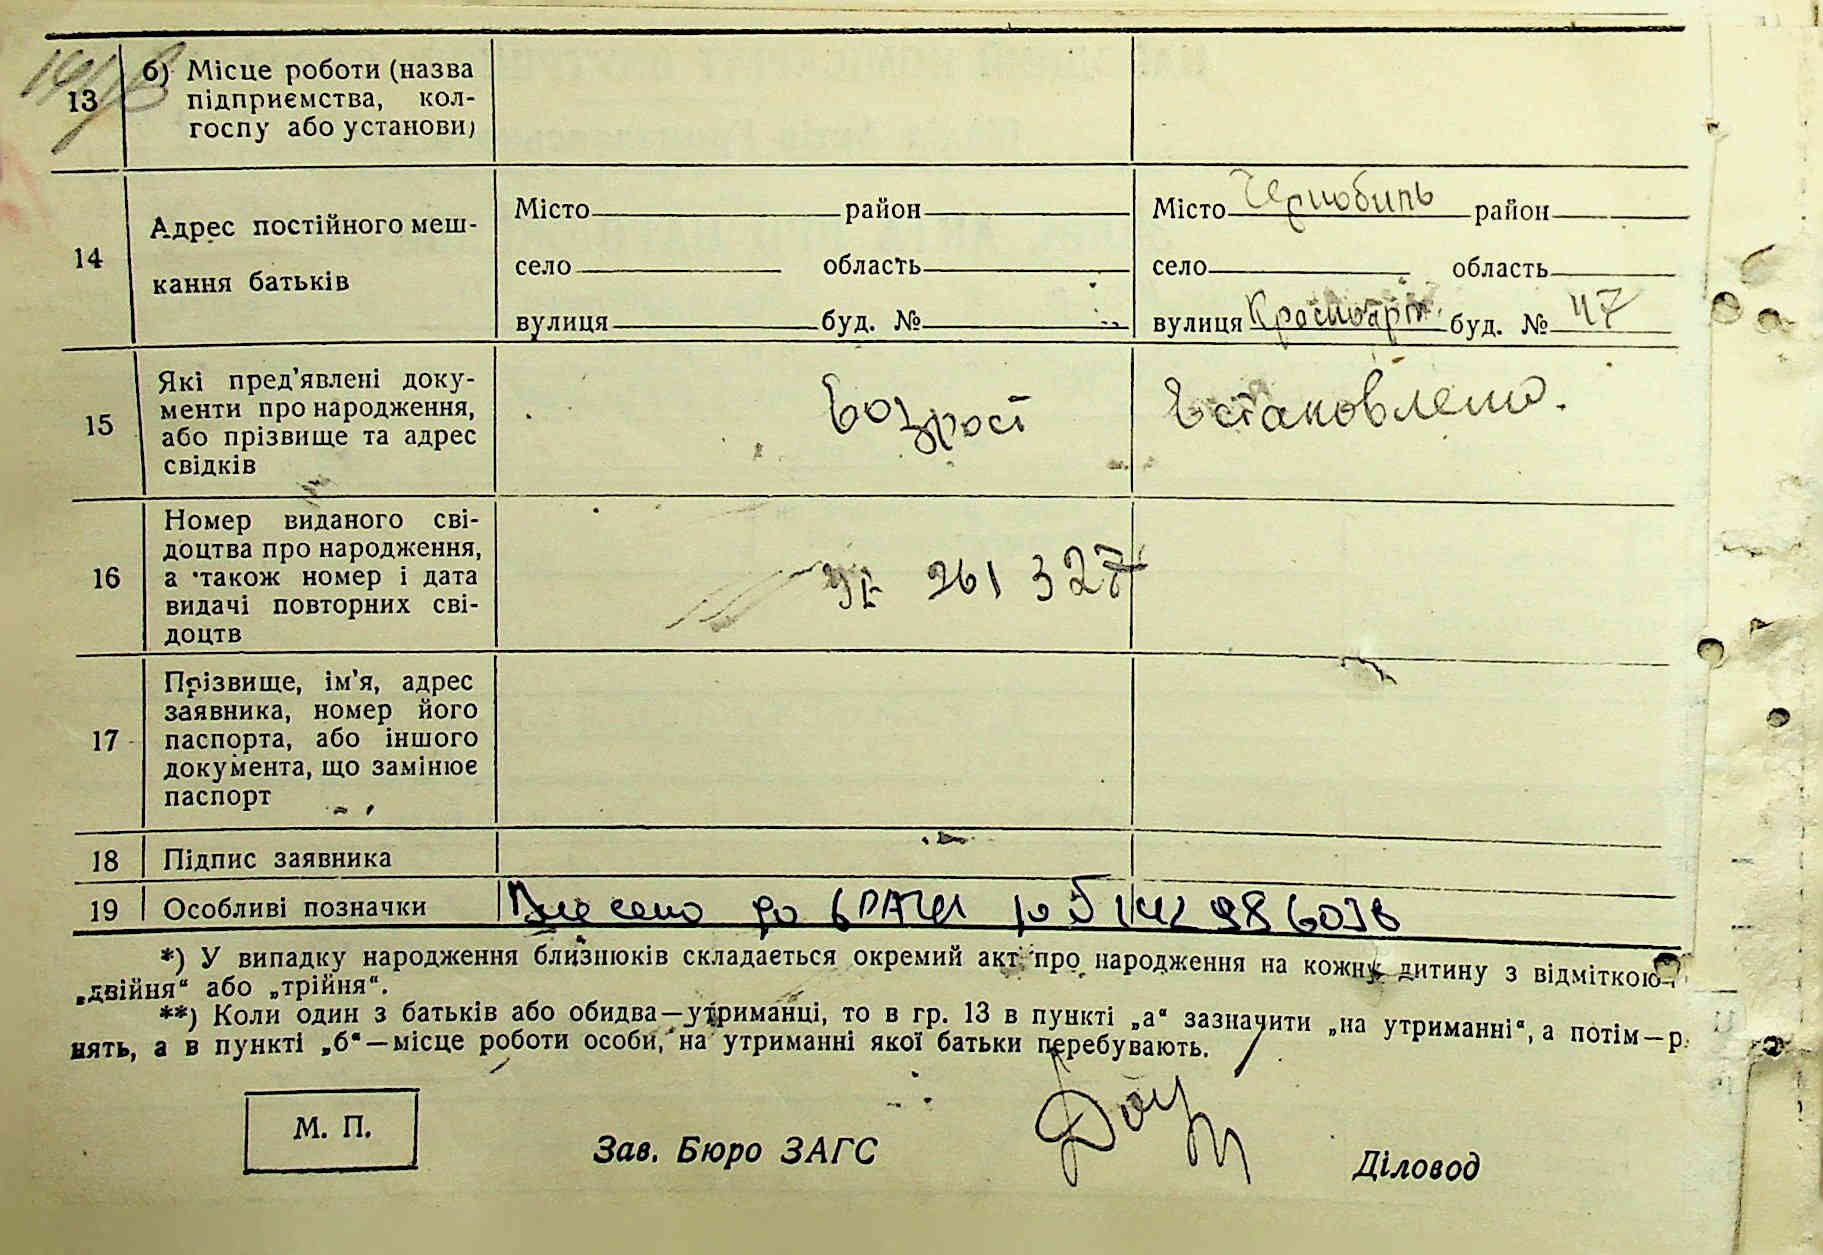 13
б) Місце роботи (назва
підприємства, кол-
госпу або установи)
14
Адрес постійного меш-
кання батьків
Місто район
село область
вулиця буд. №
Місто Чернобиль район
село область
вулиця Красноарм. буд. № 47
15
Які пред’явлені доку-
менти про народження,
або прізвище та адрес
свідків
Возрост Встановлено.
16
Номер виданого сві-
доцтва про народження,
а також номер і дата
видачі повторних сві-
доцтв
261 327
17
Прізвище, ім’я, адрес
заявника, номер його
паспорта, або іншого
документа, що замінює
паспорт
18 Підпис заявника
19 Особливі позначки
Внесено до
*) У випадку народження близнюків складається окремий акт про народження на кожну дитину з відміткою
„двійня“ або „трійня“.
**) Коли один з батьків або обидва—утриманці, то в гр. 13 в пункті „а“ зазначити „на утриманні“, а потім—р
нять, а в пункті „б“—місце роботи особи, на утриманні якої батьки перебувають.
М. П.
Зав. Бюро ЗАГС
Діловод